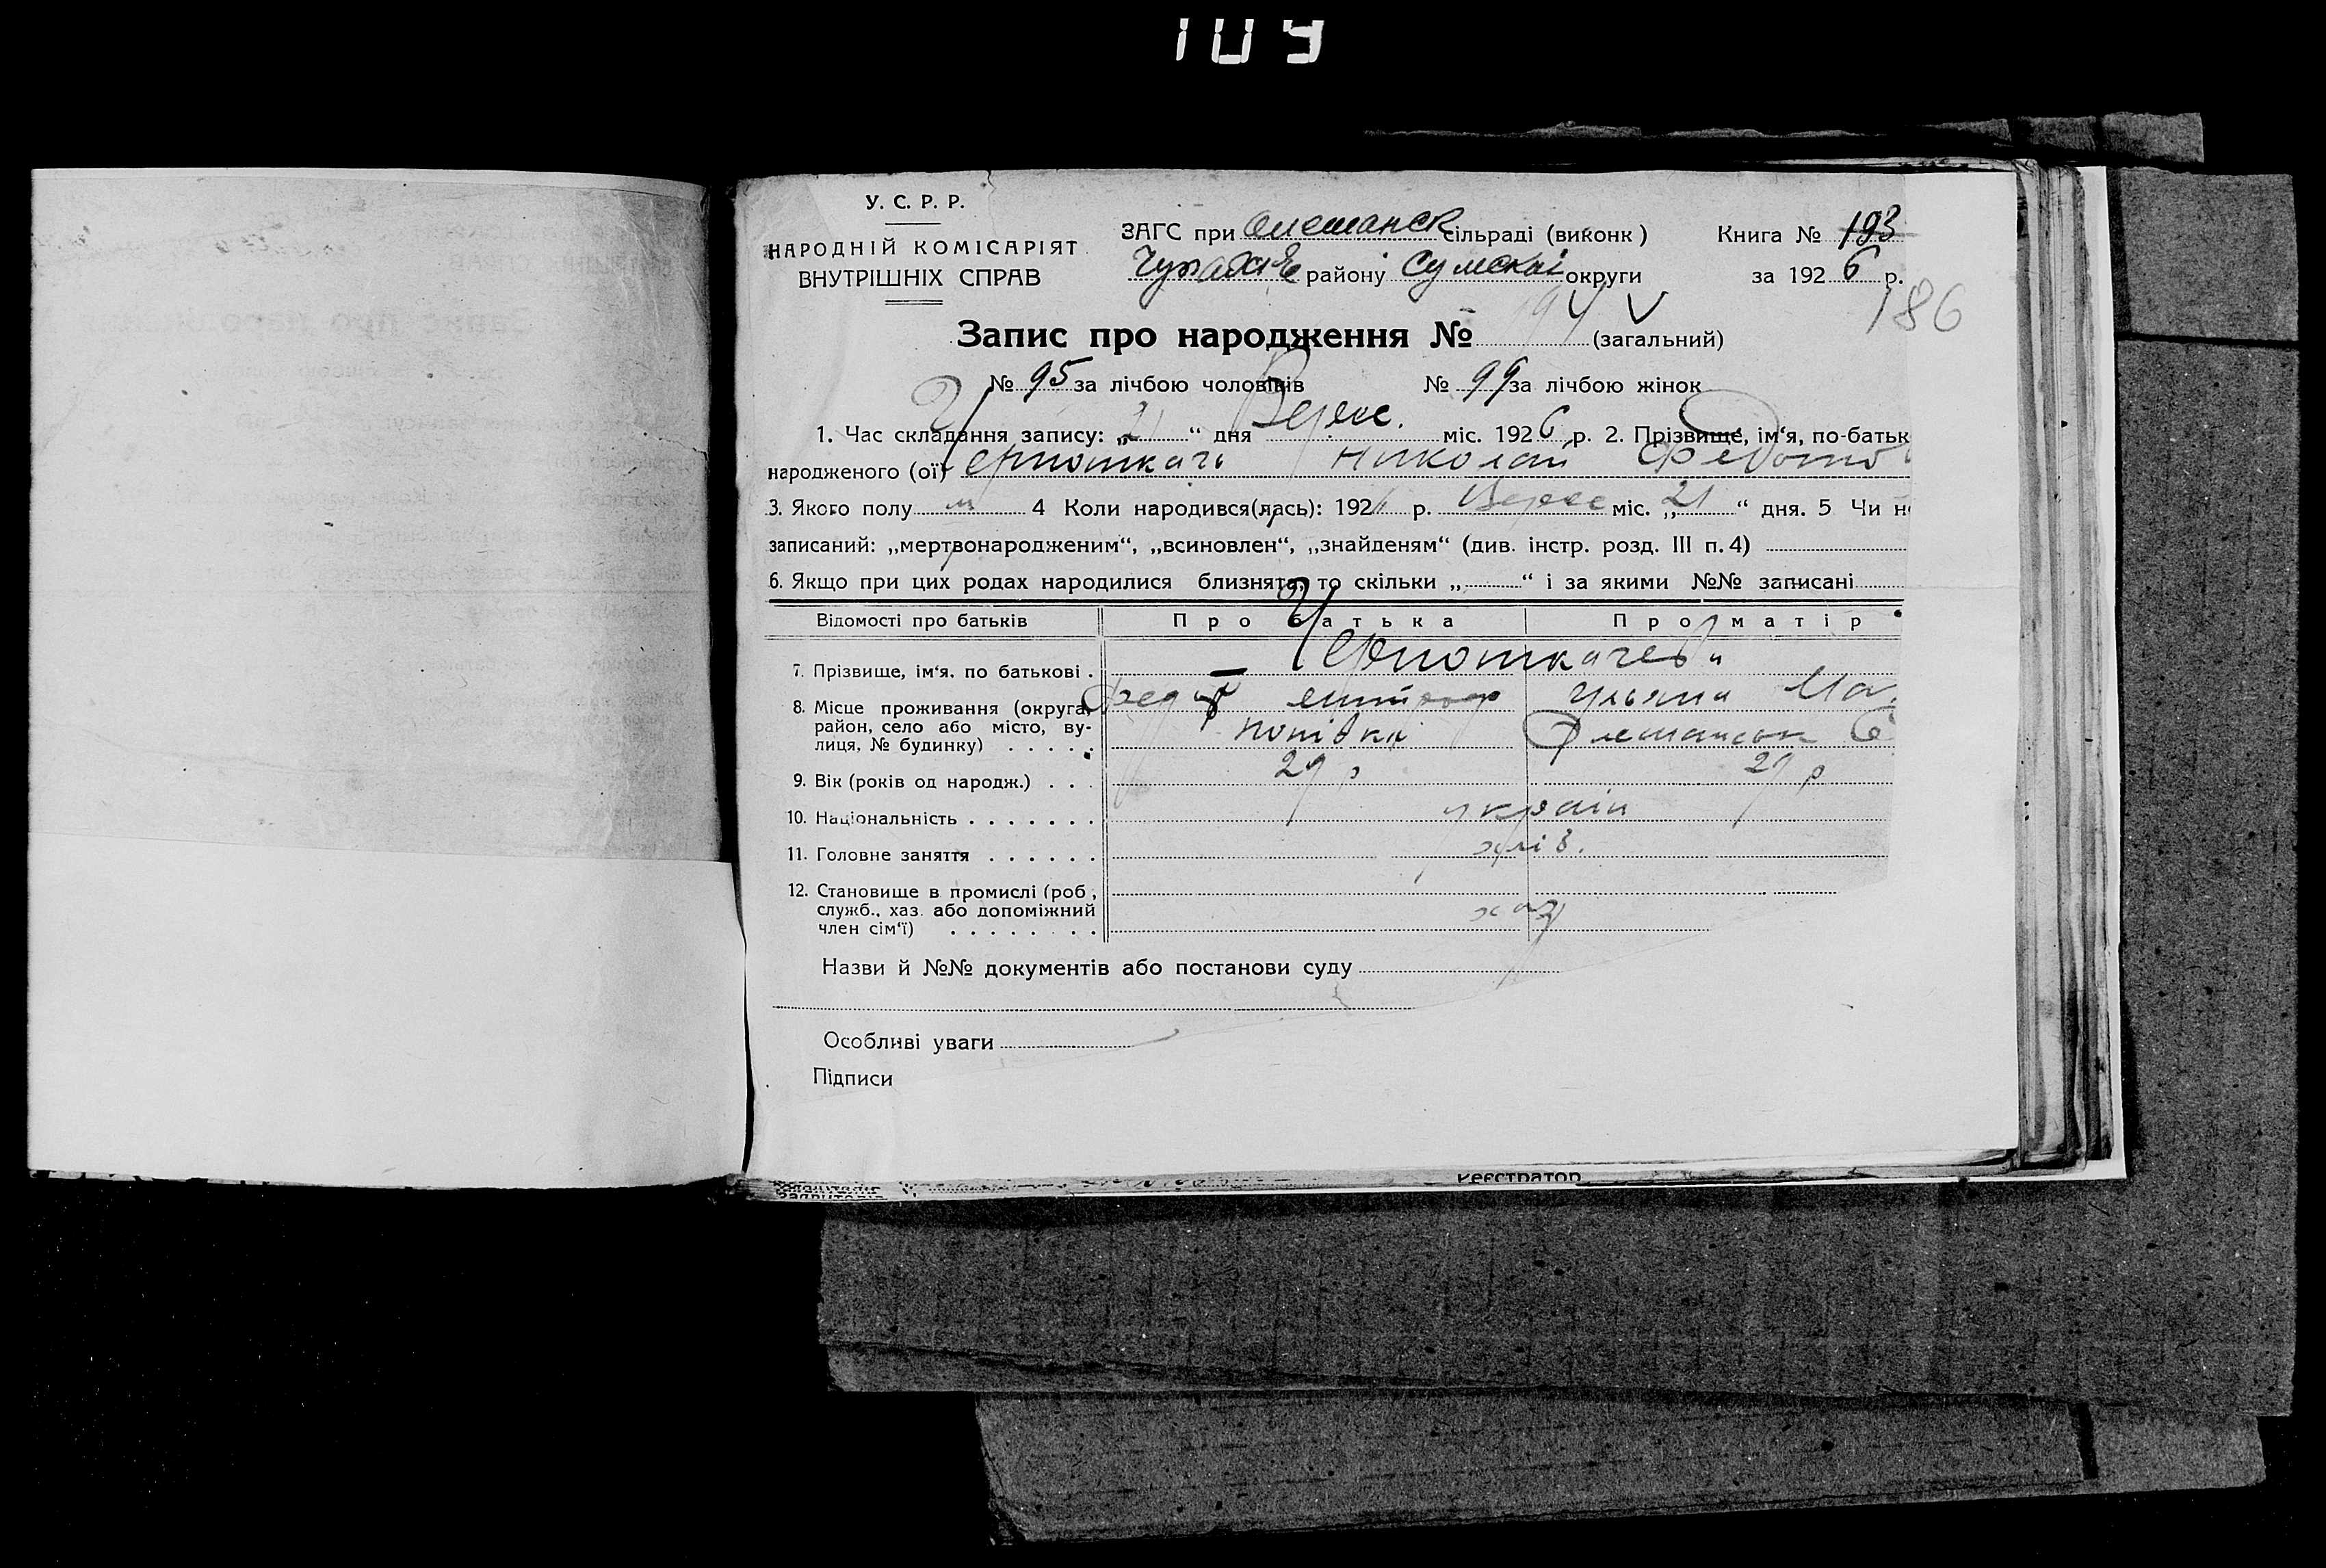 109
У. С. Р. Р.
НАРОДНІЙ КОМІСАРІЯТ
ВНУТРІШНІХ СПРАВ
ЗАГС при Олешанск сільраді (виконк)
Чупахів району Сумскої округи
Книга № 193
за 1926 р.
186
Запис про народження № 194 (загальний)
№ 95 за лічбою чоловіків № 99 за лічбою жінок
1. Час складання запису: „21“ дня Верес. міс. 1926 р. 2. Прізвище, ім‘я, по-батьк
народженого (ої) Черноткачь Николай Федото
3. Якого полу м 4 Коли народився(лась): 192 р. Верес міс. „21“ дня. 5 Чи н
записаний: „мертвонародженим“, „всиновлен“, „знайденям“ (див. інстр. розд. III п. 4)
6. Якщо при цих родах народилися близнята, то скільки „ “ і за якими №№ записані
Відомості про батьків Про батька Про матір
7. Прізвище, ім‘я, по батькові . Черноткачеви
8. Місце проживання (округа, Федот Ульяна
район, село або місто, ву- попівка
лиця, № будинку) . . . . .
9. Вік (років од народж.) . . . 29 р 29 р
10. Національність . . . . . . . україн
11. Головне заняття . . . . . . хліб.
12. Становище в промислі (роб,
служб., хаз. або допоміжний хаз
член сім‘ї) . . . . . . . .
Назви й №№ документів або постанови суду
Особливі уваги
Підписи
Реєстратор